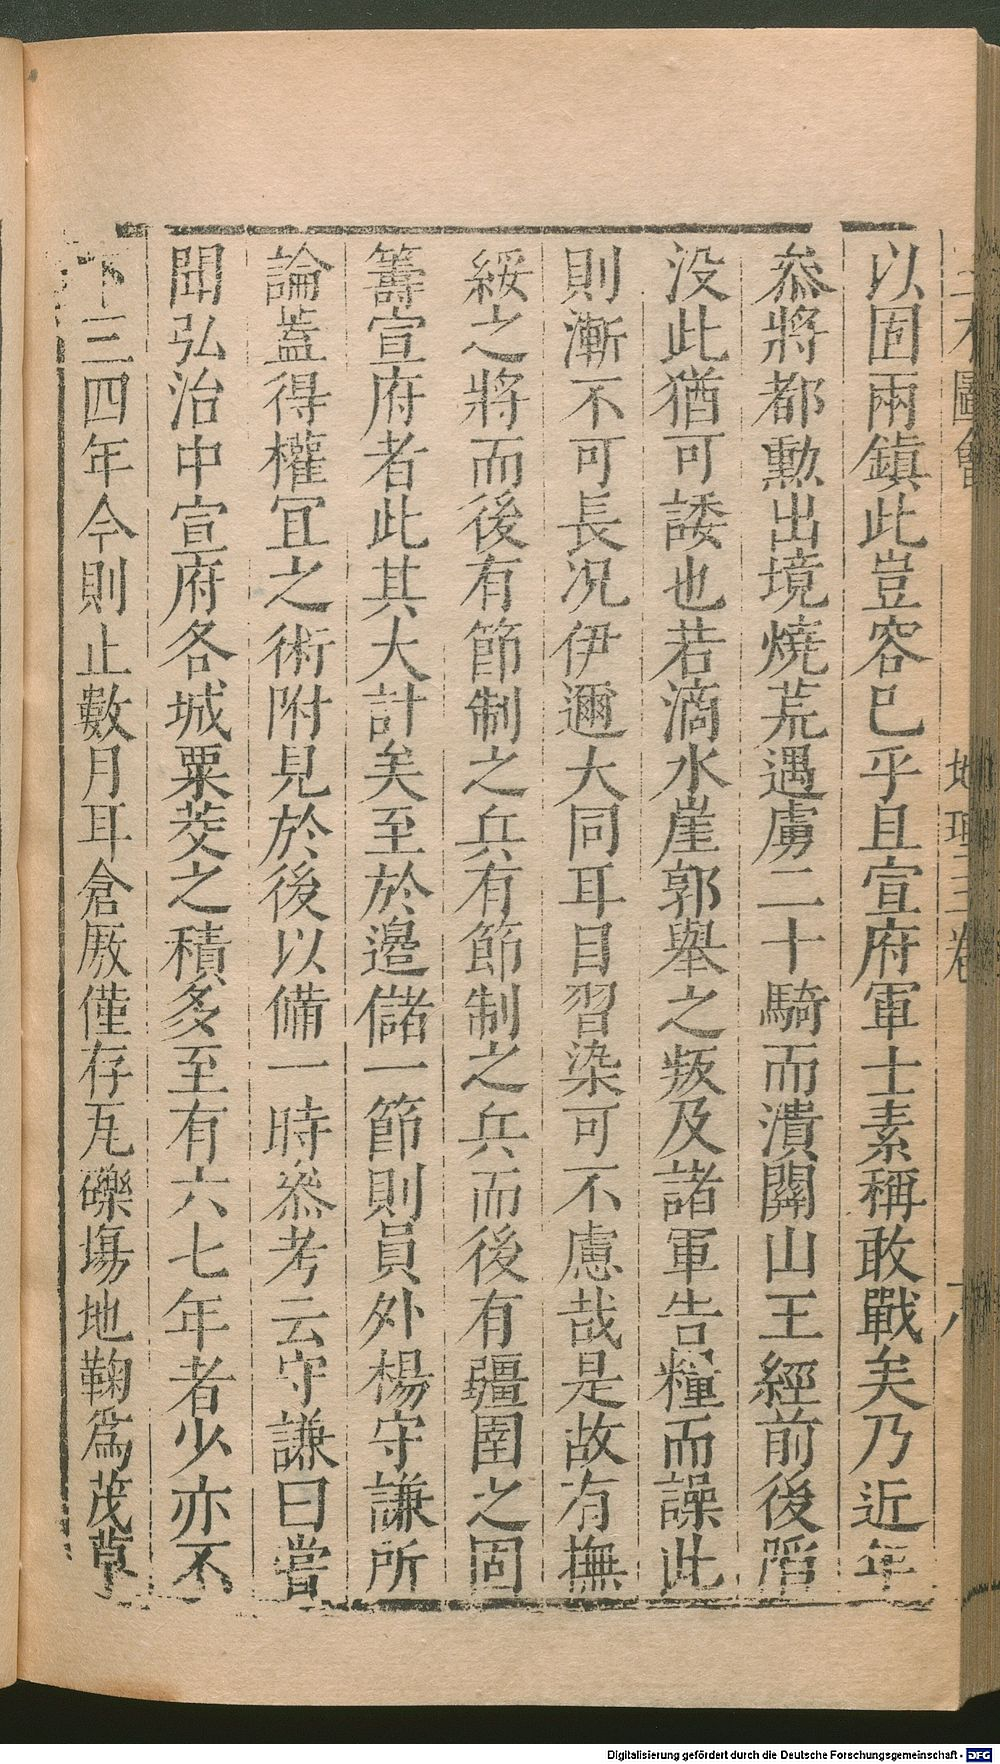 三才圖會 地理三卷
以固兩鎮此豈容已乎且宣府軍士素稱敢戰矣乃近年
叅將都勳出境燒荒遇虜二十騎而潰關山王經前後陷
没此猶可諉也若滴水崖郭舉之叛及諸軍告糧而譟此
則漸不可長况伊邇大同耳目習染可不慮哉是故有撫
綏之將而後有節制之兵有節制之兵而後有疆圉之固
籌宣府者此其大計矣至於邊儲一節則員外楊守謙所
論蓋得權冝之術附見於後以備一時叅考云守謙曰嘗
聞弘治中宣府各城粟茭之積多至有六七年者少亦不
下三四年今則止數月耳倉厫僅存瓦礫塲地鞠爲茂草
Digitalisierung gefördert durch die Deutsche Forschungsgemeinschaft - DFG